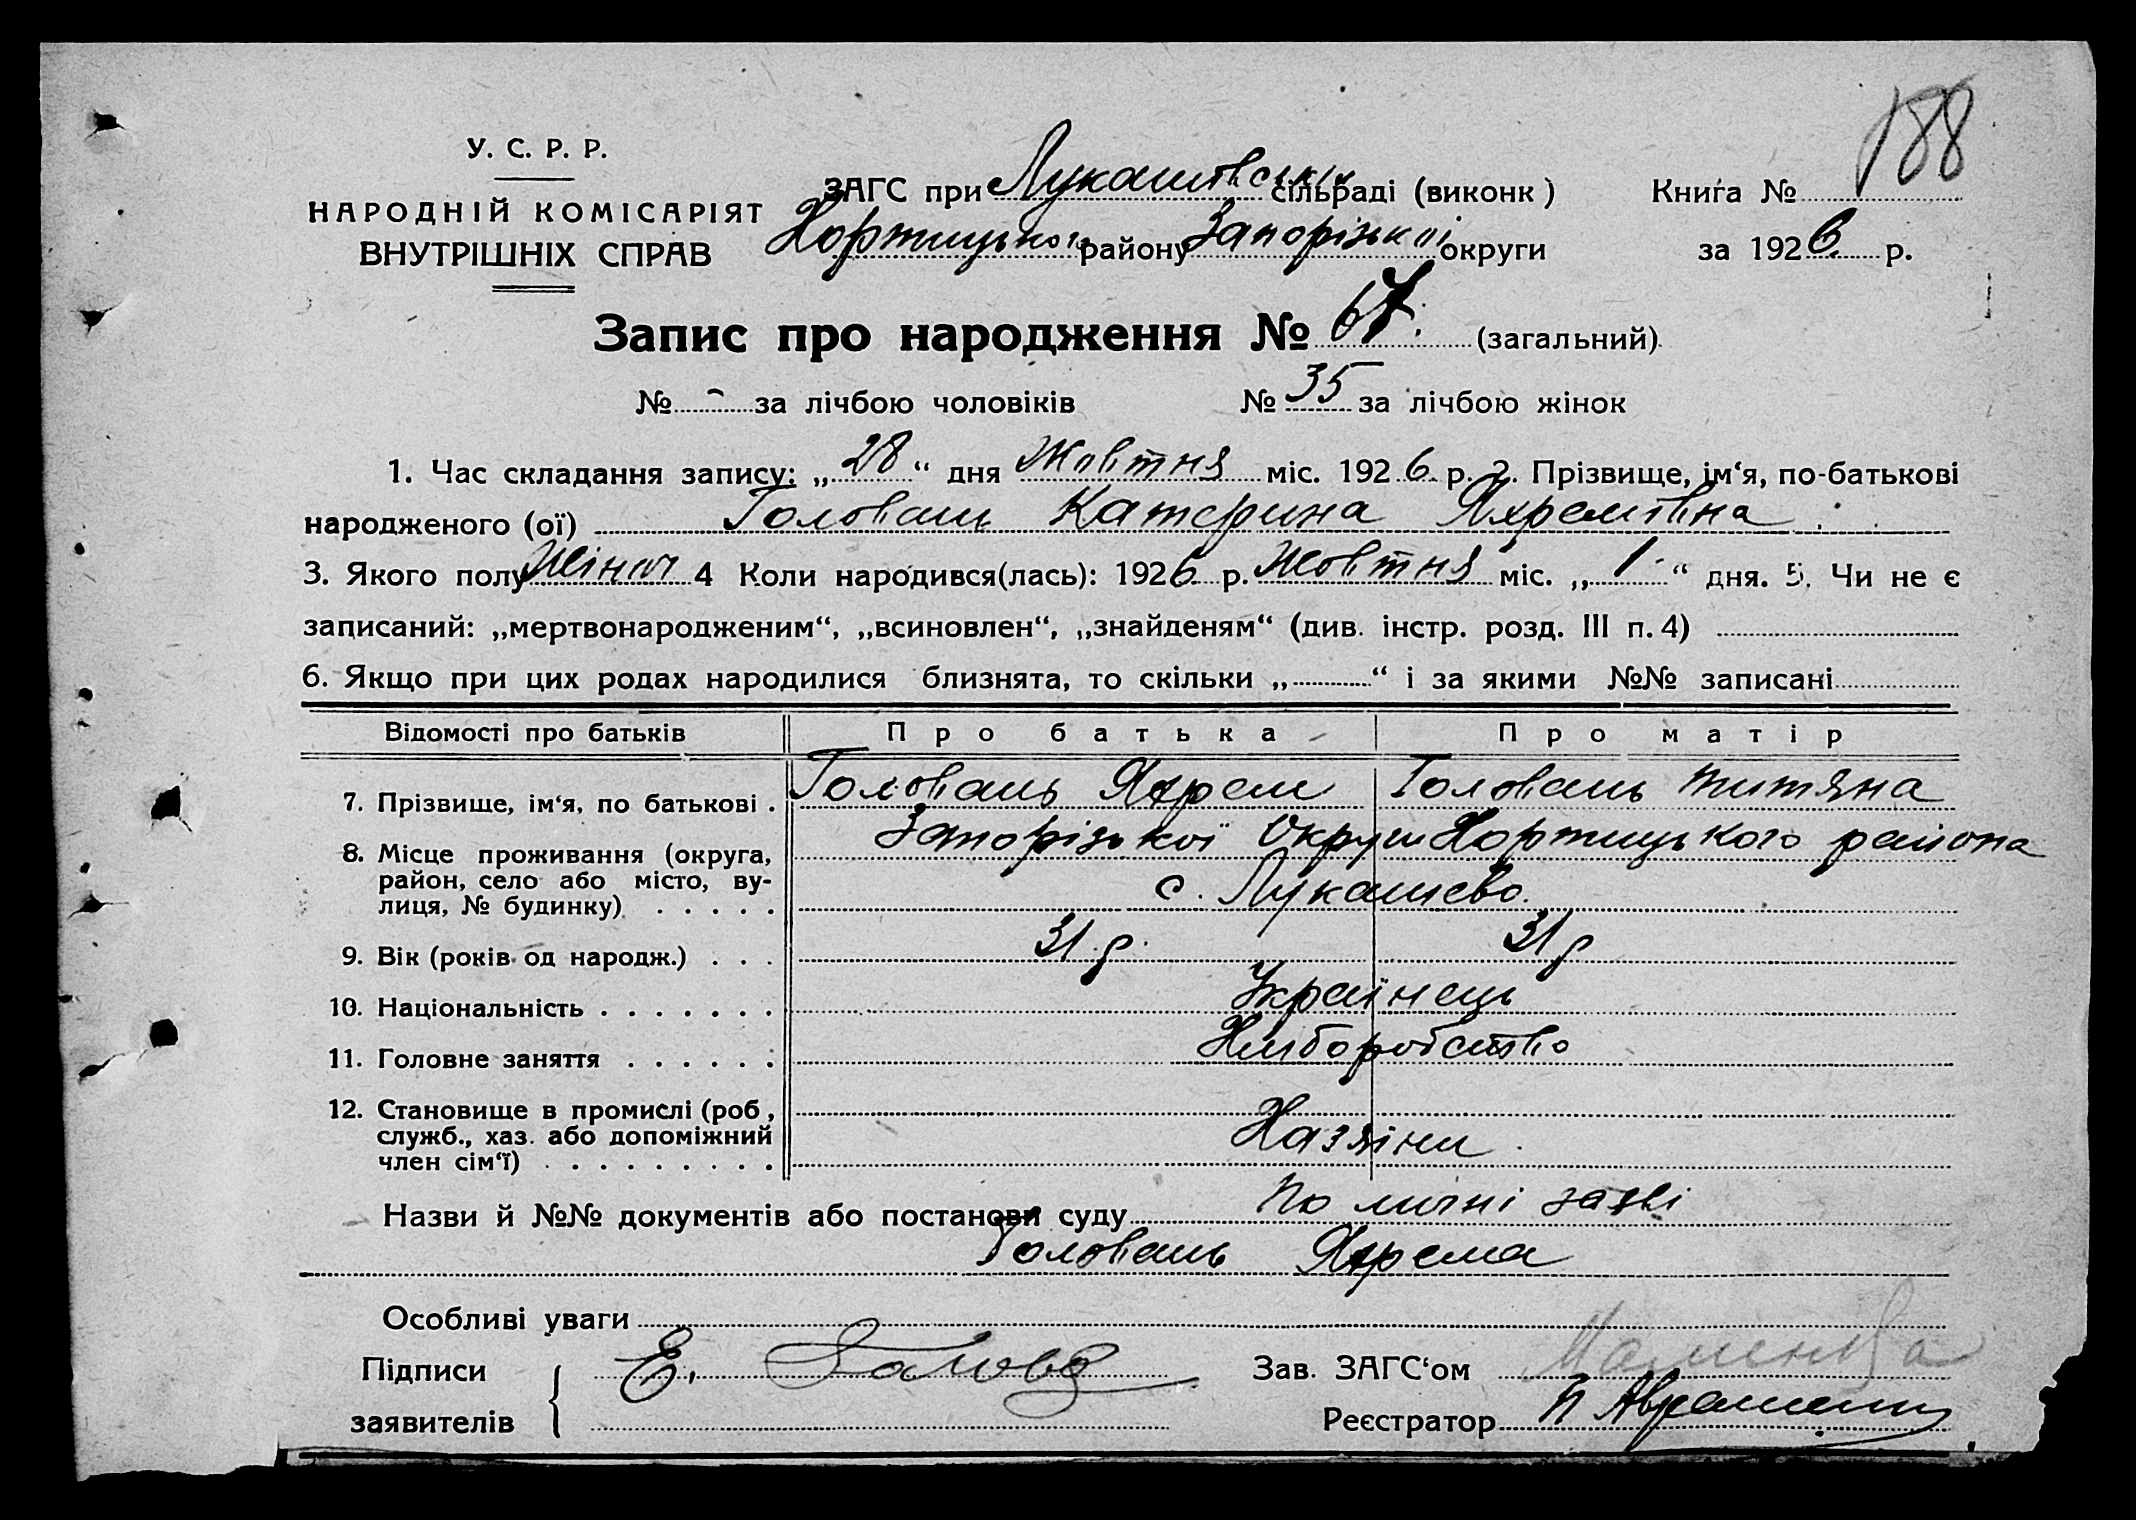 188
У. С. Р. Р.
НАРОДНІЙ КОМІСАРІЯТ
ВНУТРІШНІХ СПРАВ
ЗАГС при Лукашівській сільраді (виконк) Книга №
Хортицького району Запорізької округи за 1926 р.
Запис про народження № 67. (загальний)
№ - за лічбою чоловіків № 35 за лічбою жінок
1. Час складання запису: „28“ дня Жовтня міс. 1926 р. 2. Прізвище, ім‘я, по-батькові
народженого (ої) Головань Катерина Яхремівна
3. Якого полу Жіноч 4 Коли народився(лась): 1926 р. Жовтня міс. „1“ дня. 5. Чи не є
записаний: „мертвонародженим“, „всиновлен“, „знайденям“ (див. інстр. розд. III п. 4)
6. Якщо при цих родах народилися близнята, то скільки „ “ і за якими №№ записані
Відомості про батьків Про батька Про матір
7. Прізвище, ім‘я, по батькові . Головань Яхрем Головань Титяна
8. Місце проживання (округа, Запорізької Округи Хортицького района
район, село або місто, ву- с. Лукашево.
лиця, № будинку) . . . . .
9. Вік (років од народж.) . . . 31 р. 31 р
10. Національність . . . . . . . Українець
11. Головне заняття . . . . . . Хліборобство
12. Становище в промислі (роб.,
служб., хаз. або допоміжний Хазяіни
член сім‘ї) . . . . . . . . .
Назви й №№ документів або постанови суду По личні заяві
Головань Яхрема
Особливі уваги
Підписи Е. Зав. ЗАГС‘ом
заявителів Реєстратор П